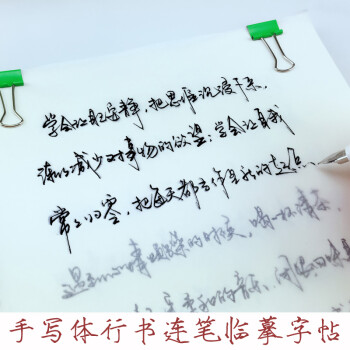 学会让自己安静,把思维沉浸下来,
渐渐减少对事物的欲望;学会让自我
常常归零,把每天都当作是新的起点.
心情烦躁的时候,喝一杯清茶,
柔和的音乐,闭眼回味
手写体行书连笔临摹字帖